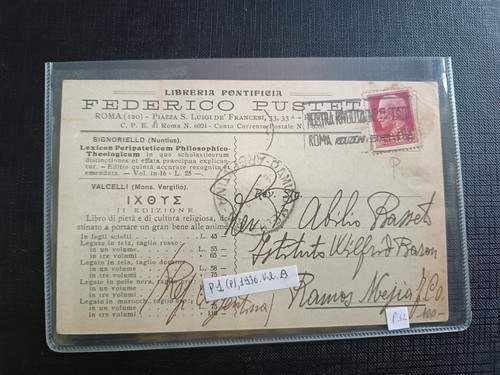 LIBRERIA PONTIFICIA
FEDERICO PUSTET
ROMA (120) - PIAZZA S. LUIGI DE' FRANCESI, 33, 33 A
C. P. E. di Roma N. 6021 - Conto Corrente Postale N.
SIGNORIELLO (Nuntius).
Lexicon Peripateticum Philosophico-
Theologicum in quo scholasticorum
distinctiones et effata præcipua explican-
tur. - Editio quinta accurate recognita
emendata. - Vol. in-16 - L. 25 -.
VALCELLI (Mons. Vergilio).
ΙΧΘΥΣ
II EDIZIONE
Libro di pietà e di cultura religiosa, de-
stinato a portare un gran bene alle anime
In fogli sciolti . . L. 45 -
Legato in tela, taglio rosso:
in un volume . . L. 55
in tre volumi . . » 65
Legato in tela, taglio dorato:
in un volume . . » 58
in tre volumi . . » 75
Legato in pelle nera, taglio
in un volume
in tre volumi
Legato in marocch. taglio
in un volume
in tre volumi . . » 110 -
ROMA
Rev. Abilio Basset
Istituto Wilfrid Baron
Ramos Mejia F.C.O.
(Rep. Argentina)
P-1 (P), 1936. V.E. B
P
P.12